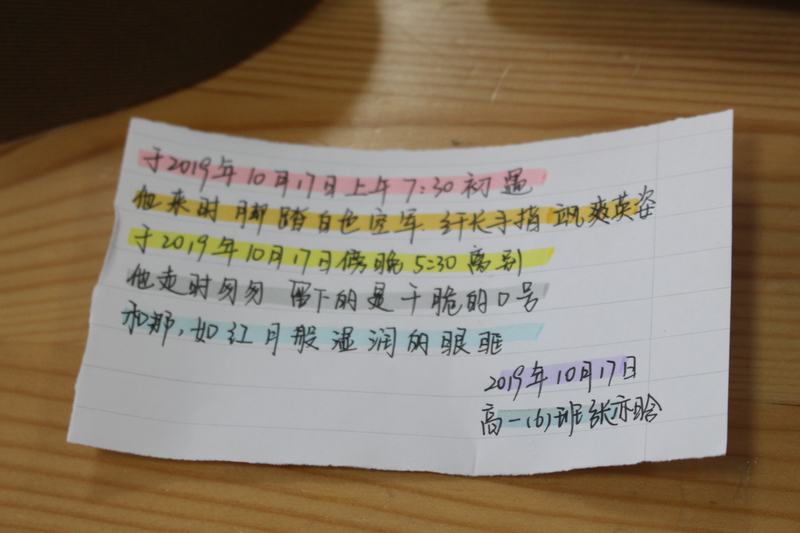 于2019年10月17日上午7:30初遇
他来时脚踏白色空军 纤长手指 飒爽英姿
于2019年10月17日傍晚5:30离别
他走时匆匆 留下的是干脆的口号
和那,如红月般湿润的眼眶
2019年10月17日
高一(6)班张亦晗